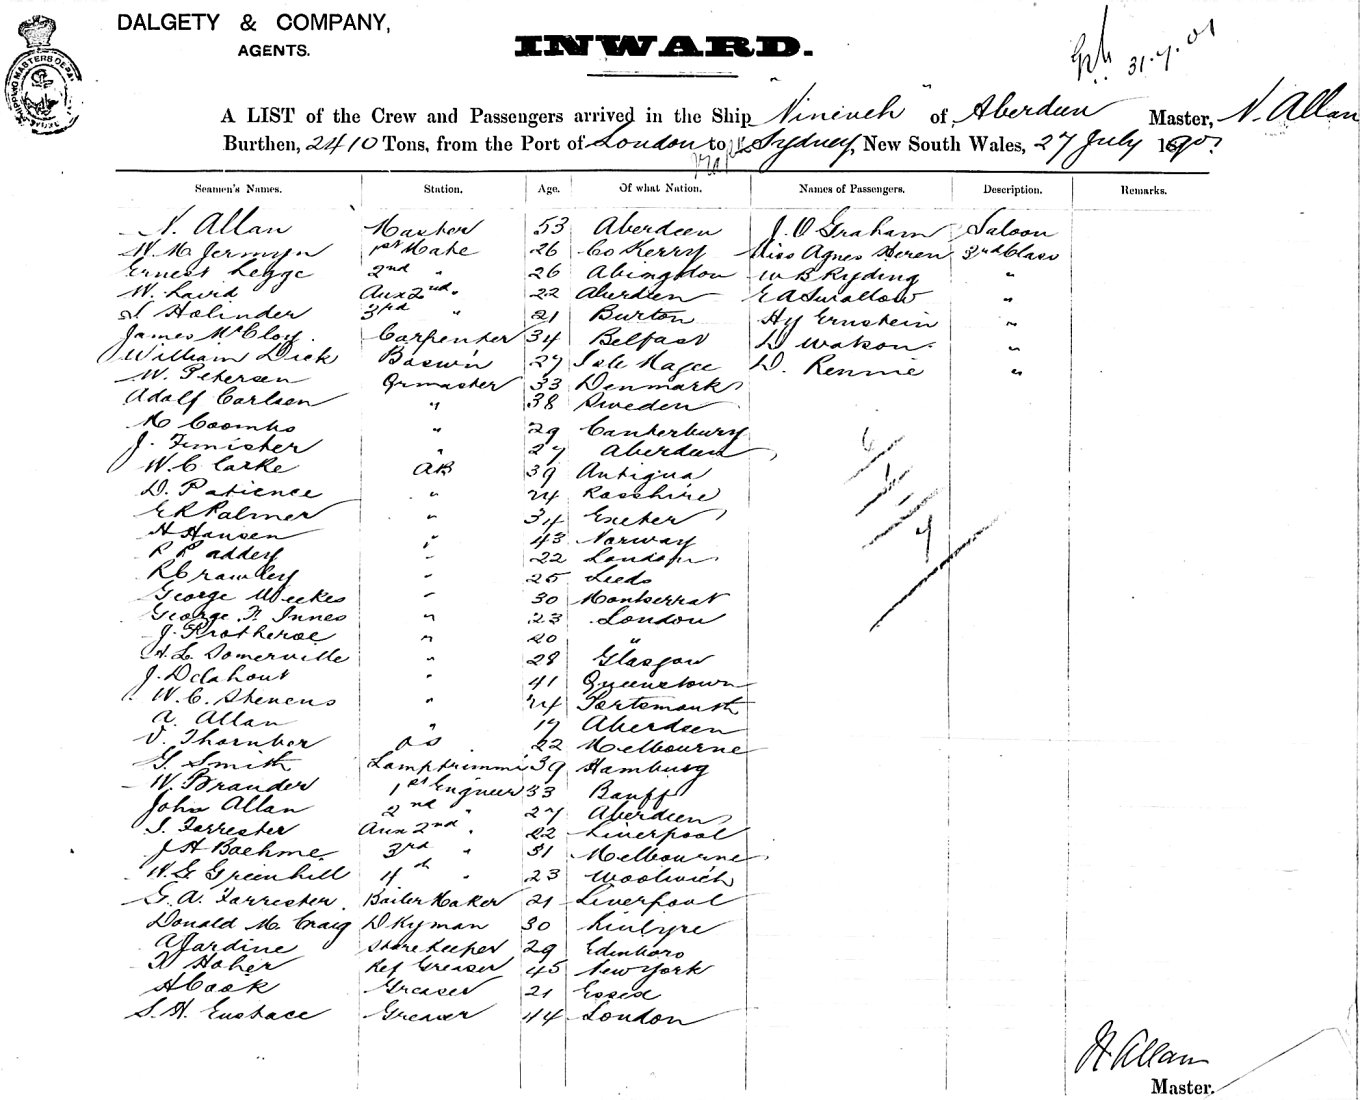 DALGETY & COMPANY,
AGENTS.
INWARD.
31.7.01
A LIST of the Crew and Passengers arrived in the Ship "Nineveh" of Aberdeen Master, N. Allan
Burthen, 2410 Tons, from the Port of London to Sydney, New South Wales, 27 July
Seamen's Names. Station. Age. Of what Nation. Names of Passengers. Description. Remarks.
N. Allan Master 53 Aberdeen J. O Graham Saloon
W. M Jermyn 1st Mate 26 Co Kerry Miss Agnes Heren 3rd Class
Ernest Legge 2nd " 26 Abingdon W B Ryding "
W. Laird Aux 2nd " 22 Aberdeen E A Swallow "
Holinder 3rd " 21 Burton Hy Ernstein "
James McCloy. Carpenter 34 Belfast D Watson. "
William Dick Boswn 27 Isle Magee D. Rennie "
W. Petersen Qrmaster 33 Denmark
Adolf Carlsen " 38 Sweden
Coombs " 29 Canterbury
J. Fimister " 27 Aberdeen 6
W. C Carke AB 39 Antigua 1
D. Patience " 24 Rosshire
E R Palmer " 34 Exeter
H Hansen " 43 Norway 7
R P addey " 22 London
R Crawley " 25 Leeds
George Weekes " 30 Montserrat
George F. Innes " 23 London
J. Protheroe " 20 "
H. L. Somerville " 28 Glasgow
J. Delahout " 41 Queenstown
W. C. Stevens " 24 Portsmouth
A. Allan " 17 Aberdeen
V. Thornber OS 22 Melbourne
G. Smith Lamptrimmr 39 Hamburg
W. Brander 1st Engineer 33 Banff
John Allan 2nd " 27 Aberdeen
S. Forrester Aux 2nd " 22 Liverpool
J H Boehme 3rd " 31 Melbourne
W. G Greenhill 4th " 23 Woolwich
G. A. Forrester. Boiler Maker 21 Liverpool
Donald M. Craig Dkyman 30 Kintyre
A Jardine Store Keeper 29 Edinboro
Hoher Ref Greaser 45 New York
H Cook Greaser 21 Essex
S. H. Eustace Greaser 44 London
N Allan
Master.